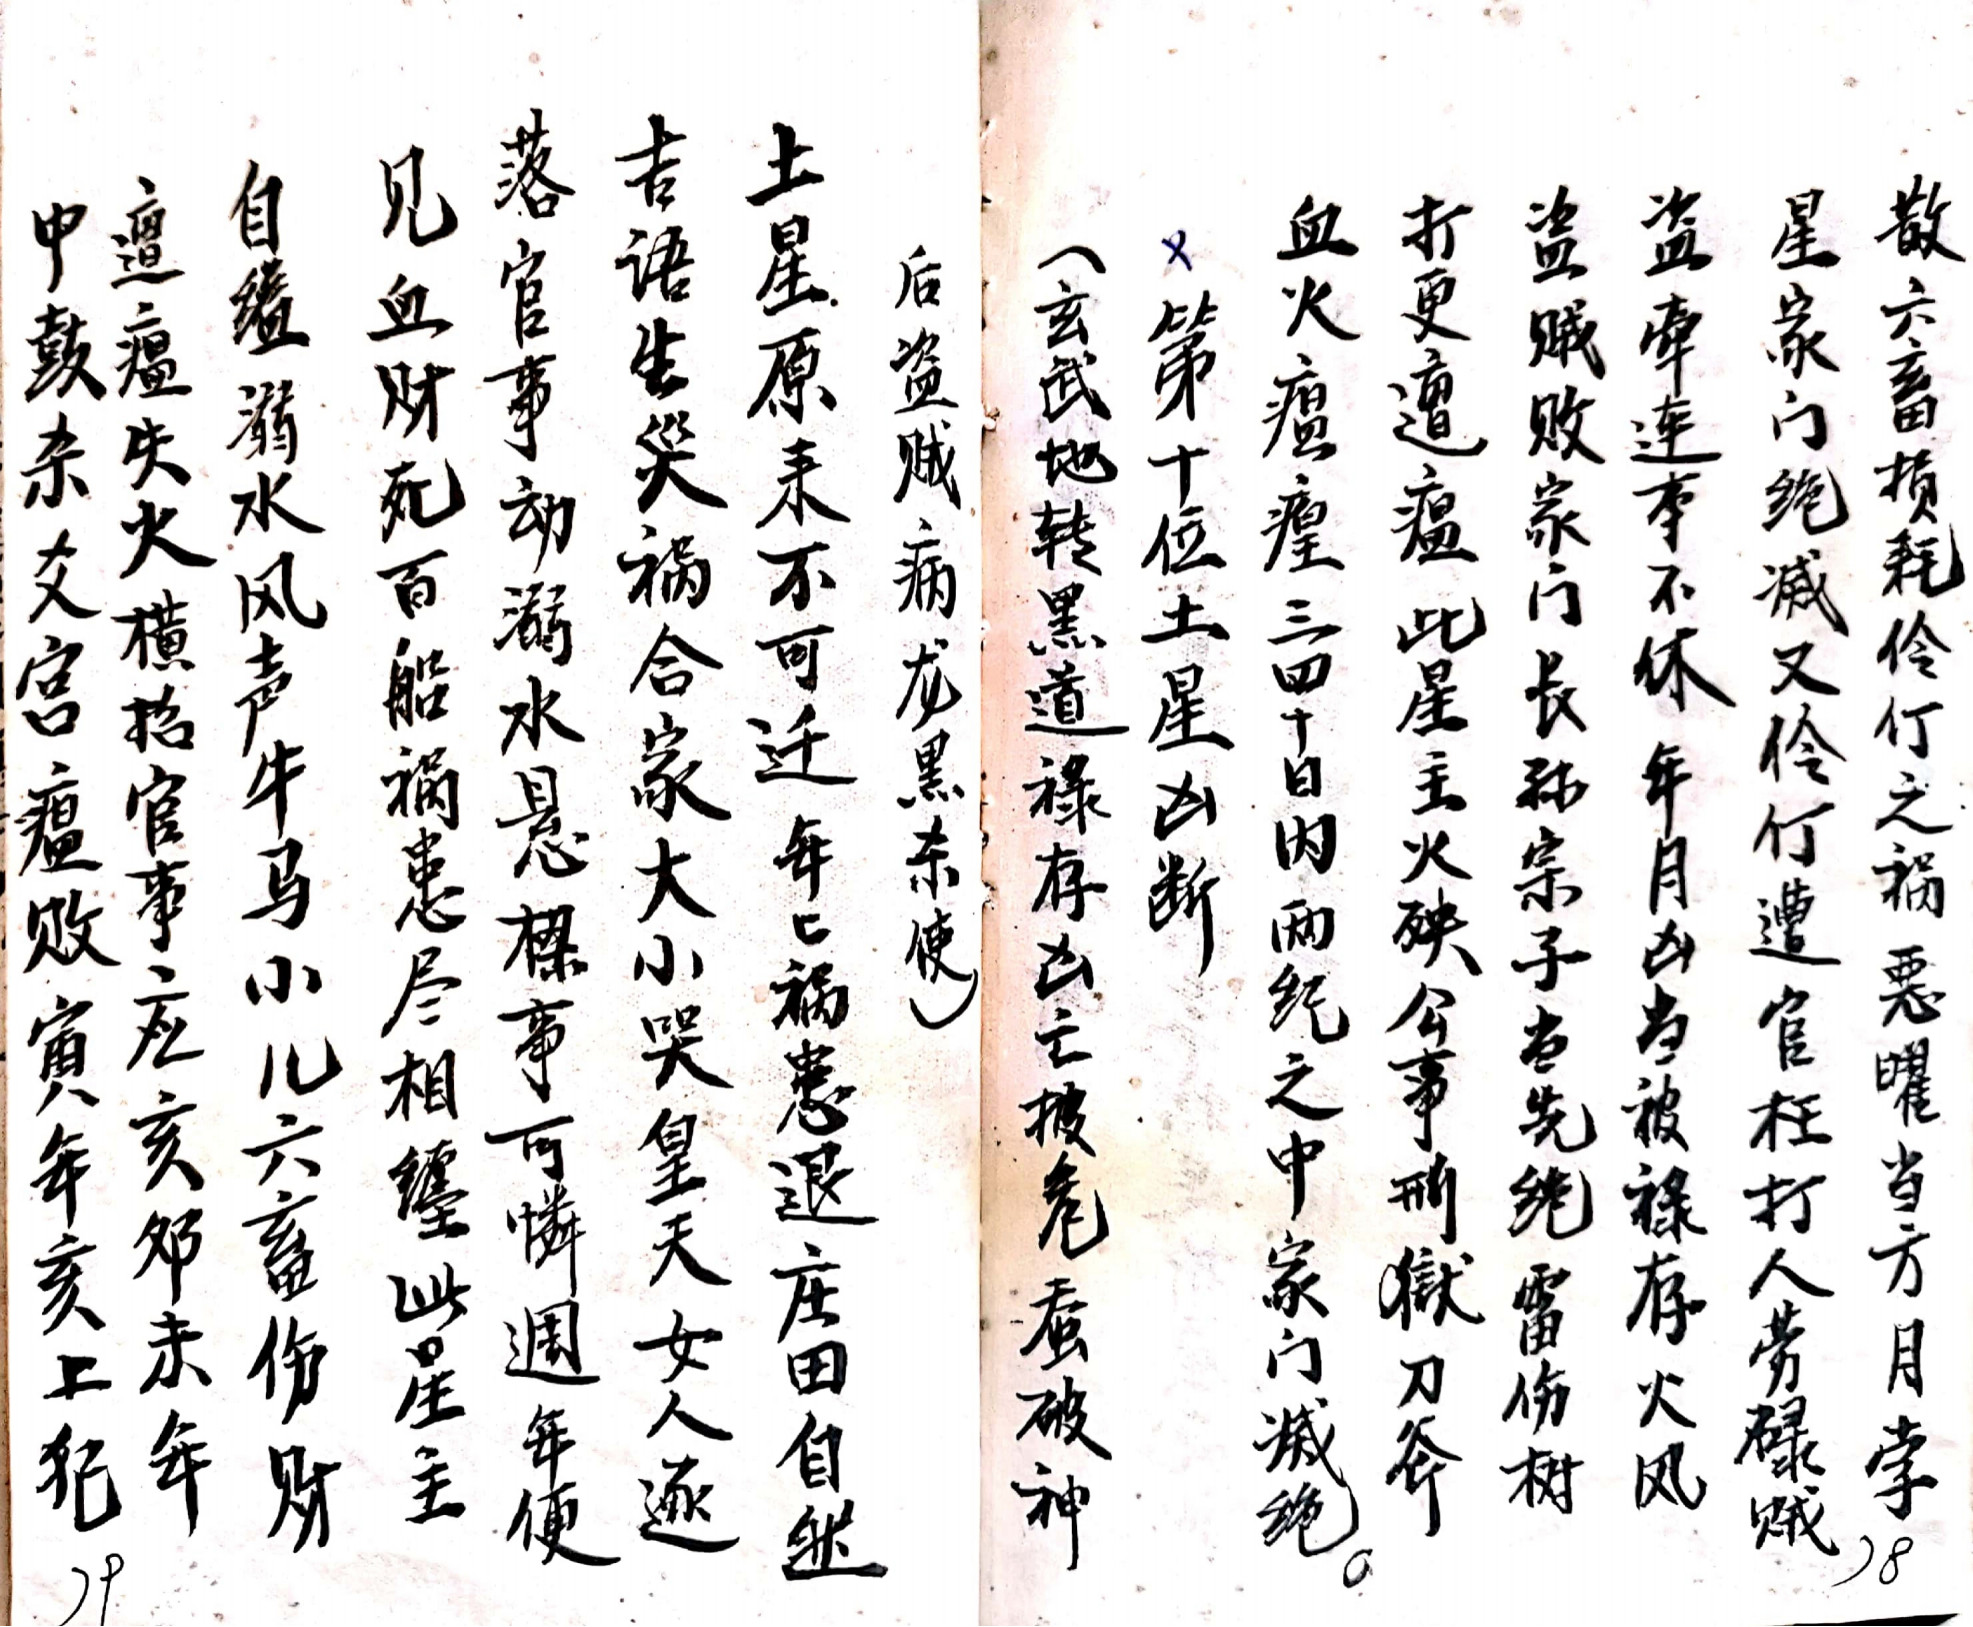 散六畜损耗伶仃之祸恶曜当方月孛
星家门绝减又伶仃遭官枉打人劳碌贼
盗牵连事不休年月凶当被禄存火风
盗贼败家门长孙宗子当先绝雷伤树
打更遭瘟此星主火殃公事刑獄刀斧
血火瘟瘟三四十日内两纪之中家门减绝。
x第十位土星凶断
(玄武地转黑道禄存凶亡披危蚕破神
18
后盗贼病龙黑杀使)
土星原来不可迁年匕祸患退庄田自然
吉语生災祸合家大小哭皇天女人逐
落官事动溺水悬樑事可憐週年便
见血财死百船祸患尽相缠此星主
自缢溺水风声牛马小儿六畜伤财
遭瘟失火横官事应亥卯未年
申鼓杀爻宫瘟败寅年亥上犯
19